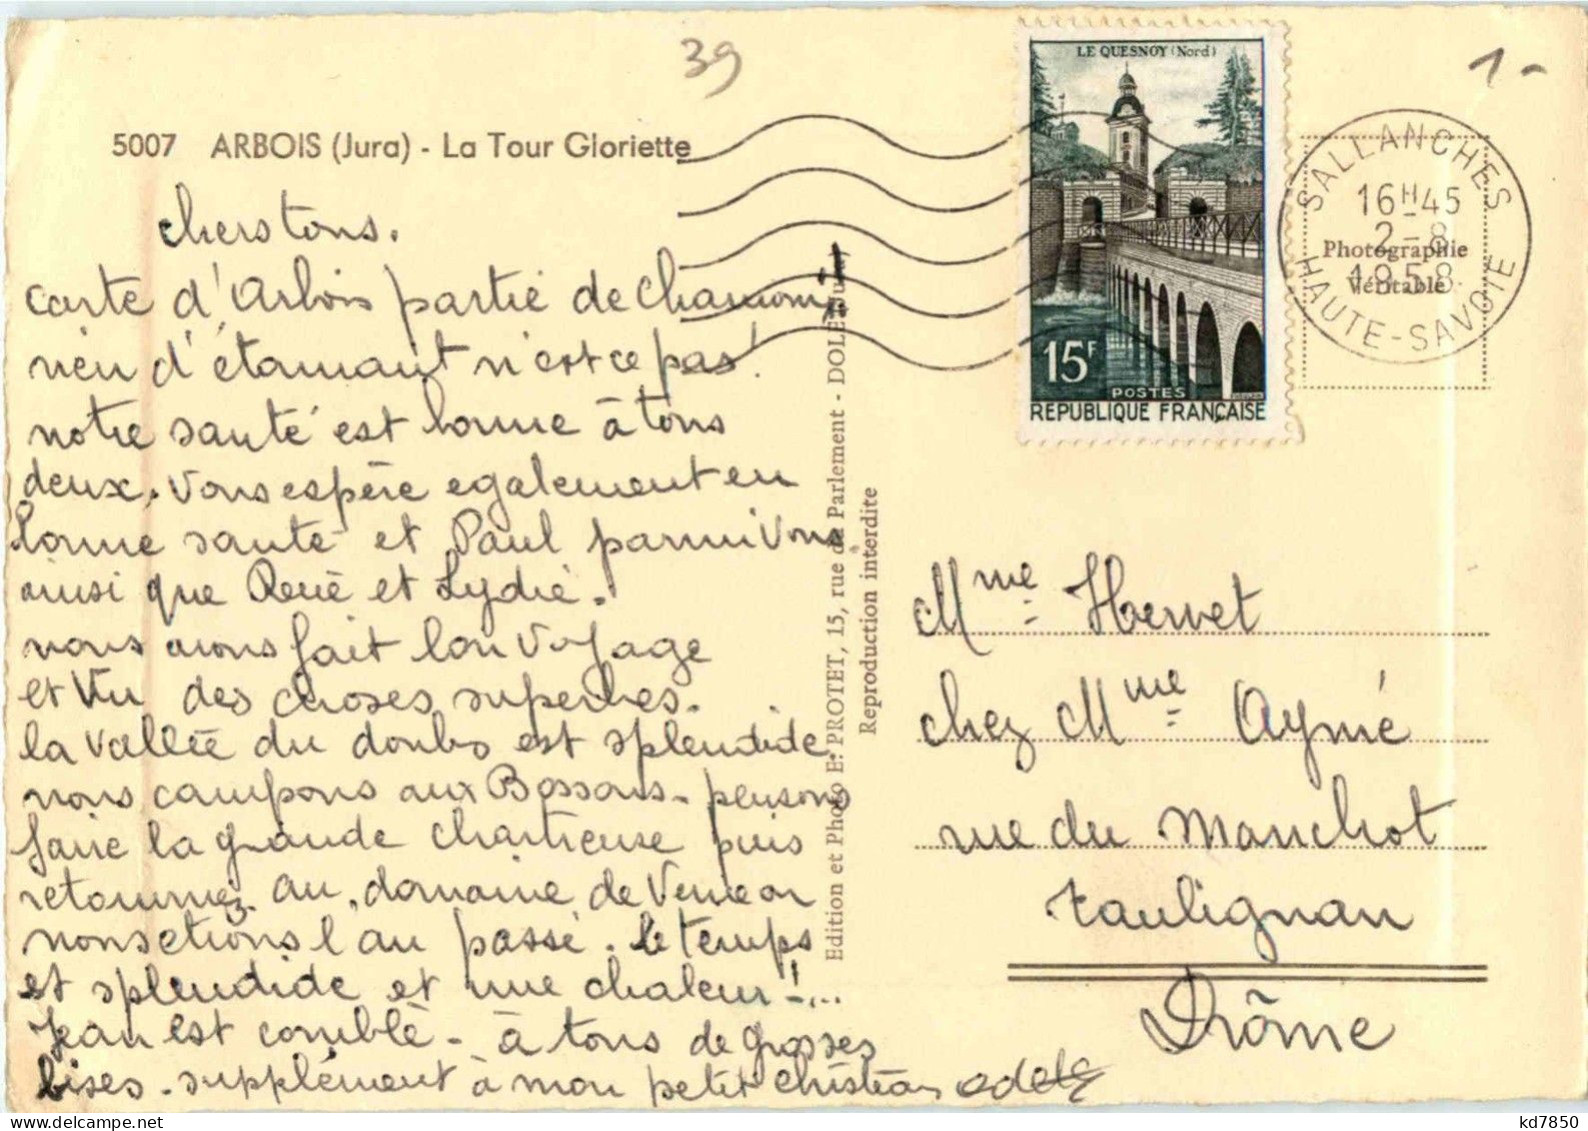 39
1-
5007 ARBOIS (Jura) - La Tour Gloriette
LE QUESNOY (Nord)
15F
POSTES
REPUBLIQUE FRANÇAISE
SALLANCHES
16H45
2-8
1958
HAUTE-SAVOIE
Photographie
Véritable
chers tous.
carte d'Arbois partie de Chamonix
rien d'étannant n'est ce pas!
notre santé est bonne à tous
deux. Vous espère egalement en
bonne santé et Paul parmi vous
ainsi que René et Lydie.
nous avons fait bon voyage
et vu des choses superbes.
la vallée du doubs est splendide
nous campons aux Bossons. pensons
faire la grande chartreuse puis
retourner au domaine de
nous étions l'an passé. le temps
et splendide et une chaleur !...
Jean est comblé - à tous de grosses
bises. supplément à mon petit christian Odette
Edition et Photo E. PROTET, 15, rue du Parlement - DOLE (Jura)
Reproduction interdite
Mme Hervet
chez Mme Aymé
rue du Manchot
Taulignan
Drôme
delcampe.net
kd7850